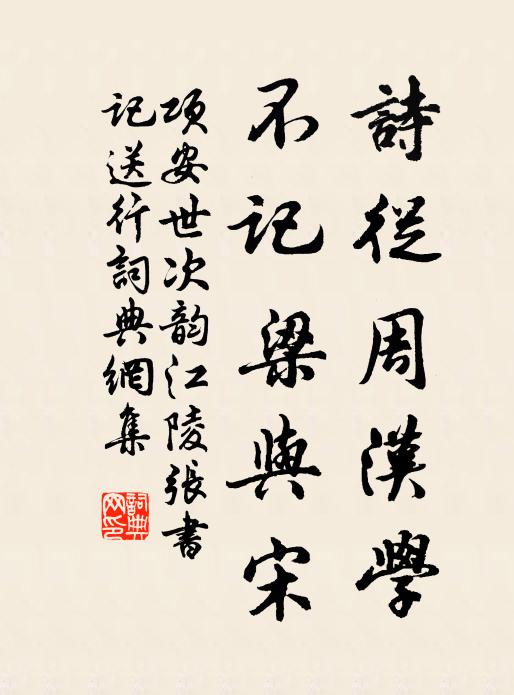 詩從周漢學
不記梁與宋
项安世次韵江陵張書
記送行詞典網集
詞典網印